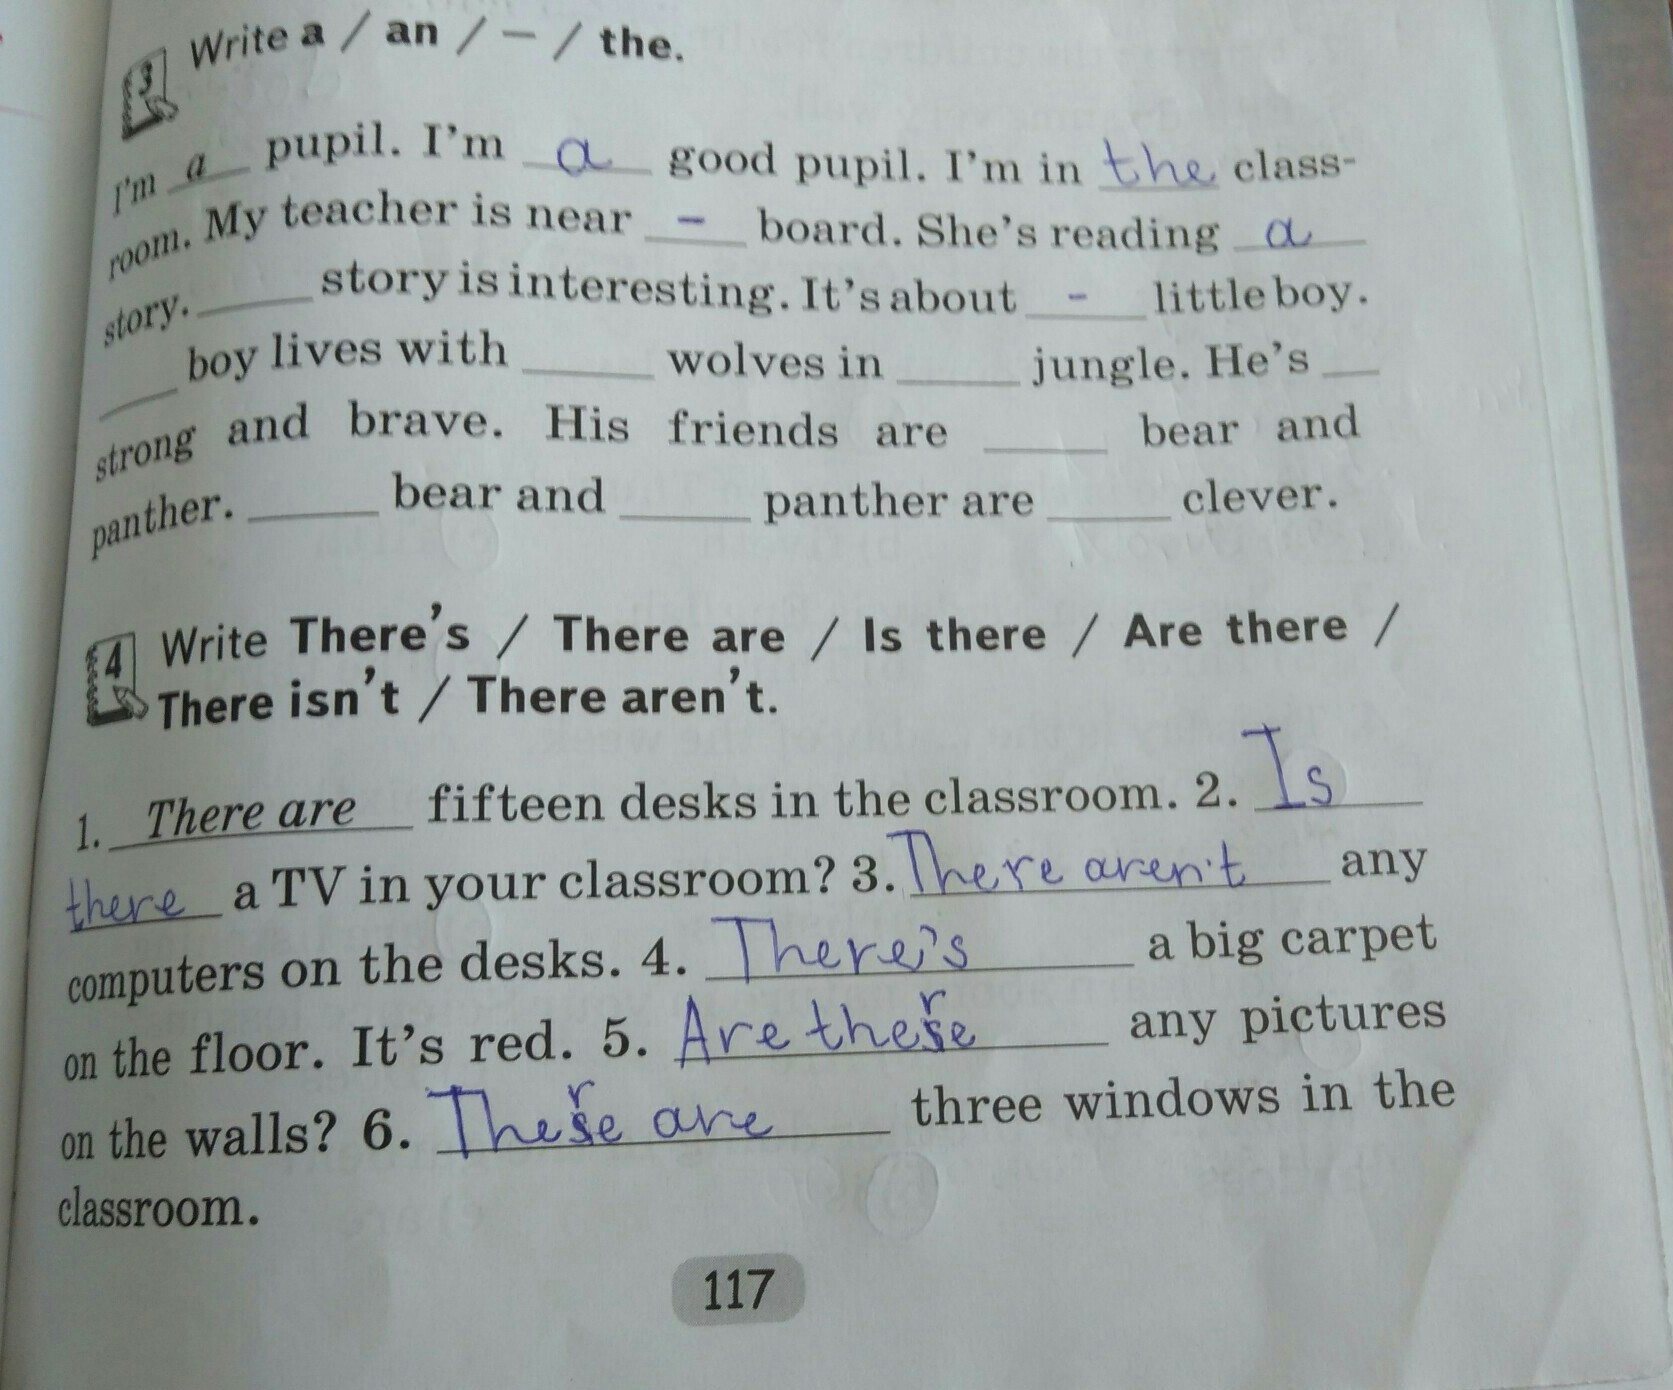 3 Write a / an / – / the.
I'm a pupil. I'm a good pupil. I'm in the class-
room. My teacher is near - board. She's reading a
story. ____ story is interesting. It's about - little boy.
____ boy lives with ____ wolves in ____ jungle. He's __
strong and brave. His friends are ____ bear and
panther. ____ bear and ____ panther are ____ clever.
4 Write There's / There are / Is there / Are there /
There isn't / There aren't.
1. There are fifteen desks in the classroom. 2. Is
there a TV in your classroom? 3. There aren't any
computers on the desks. 4. There's a big carpet
on the floor. It's red. 5. Are there any pictures
on the walls? 6. There are three windows in the
classroom.
117